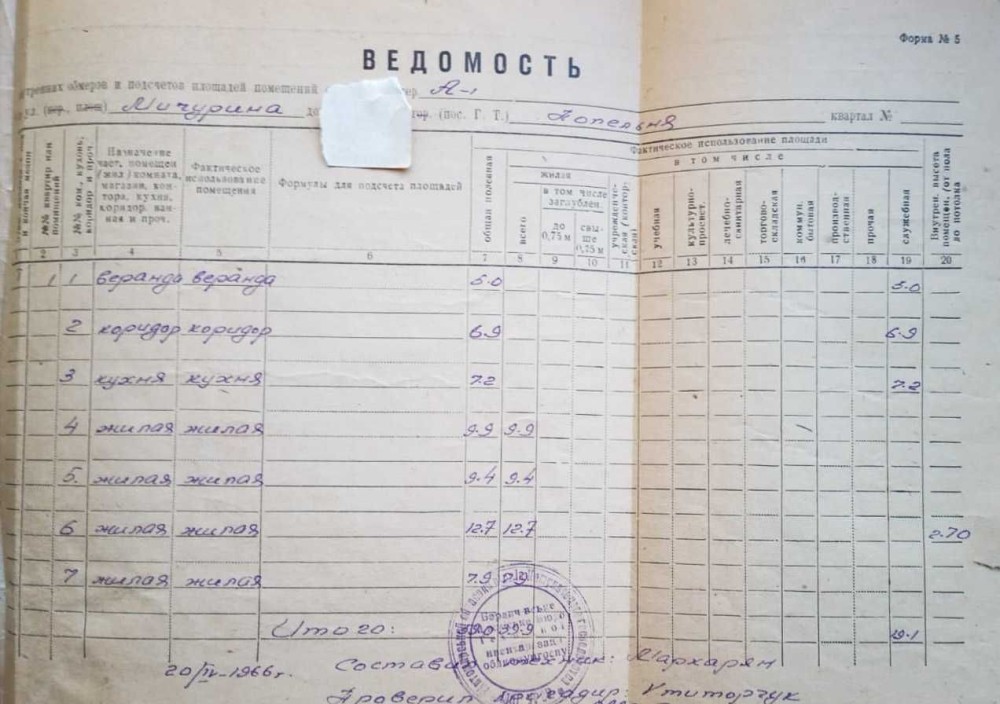 Форма № 5
ВЕДОМОСТЬ
обмеров и подсчетов площадей помещений А-1
Мичурина (пос. Г. Т.) Попельня квартал №
Фактическое использование площади
в том числе
№№ квартир или помещений
№№ комн., кухонь, коридор. и проч.
Назначение част. помещен. (жил.) комната, магазин, контора, кухня, коридор, ванная и проч.
Фактическое использование помещения
Формулы для подсчета площадей
общая полезная
жилая
всего
в том числе заглублен.
до 0,75 м
свыше 0,75 м
учрежденческая (конторская)
учебная
культурно-просвет.
лечебно-санитарная
торгово-складская
коммун. бытовая
производственная
прочая
служебная
Внутрен. высота помещен. (от пола до потолка
2 3 4 5 6 7 8 9 10 11 12 13 14 15 16 17 18 19 20
1 1 веранда веранда 5.0 5.0
2 коридор коридор 6.9 6.9
3 кухня кухня 7.2 7.2
4 жилая жилая 9.9 9.9
5. жилая жилая 9.4 9.4
6 жилая жилая 12.7 12.7 2.70
7 жилая жилая 7.9 7.9
Итого: 39.9 19.1
20/IV-1966г. техник: Маркарян
Проверил